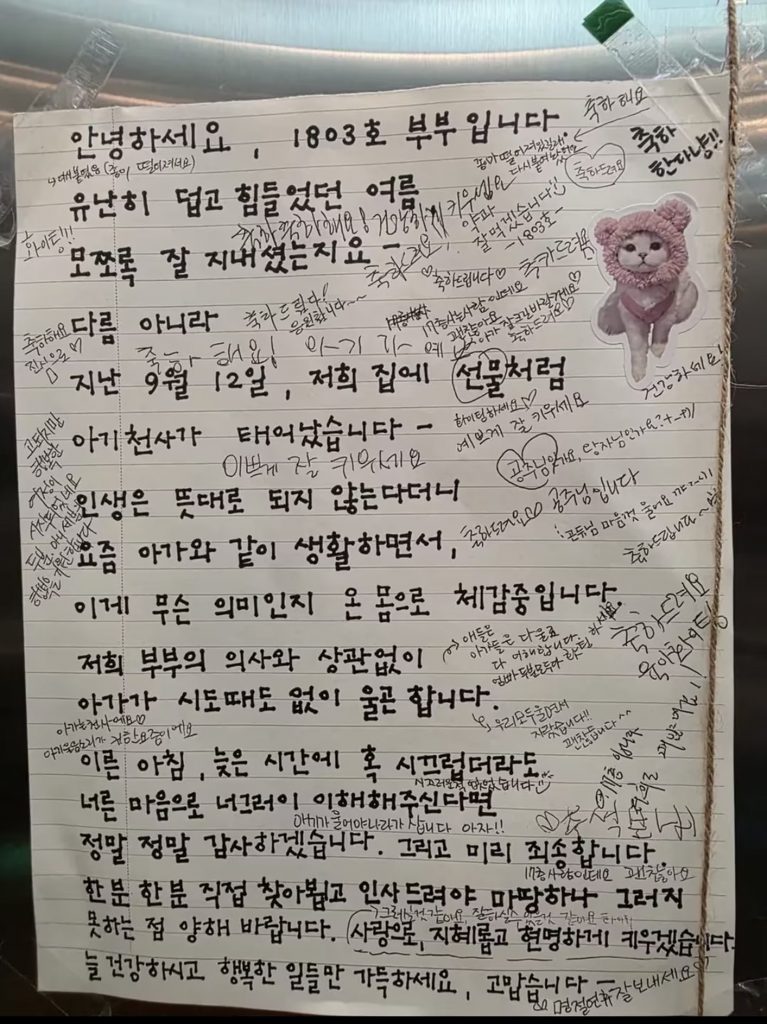 안녕하세요, 1803호 부부입니다
축하해요
축하
한다냥!!
축하드려요
유난히 덥고 힘들었던 여름
화이팅!!!
모쪼록 잘 지내셨는지요 -
잘 먹겠습니다
-1803호-
축하드립니다♡
다름 아니라
축하드립니다!
응원합니다~~
축하해요
진심으로♡
17층사는사람인데요
괜찮아요
축하드려요♡
지난 9월 12일, 저희 집에 선물처럼
건강하세요!
아기천사가 태어났습니다 -
화이팅하세요♡
예쁘게 잘 키우세요
이쁘게 잘 키우세요
공주님인가요, 왕자님인가요?
인생은 뜻대로 되지 않는다더니
축하드려요♡♡ 공주님입니다
요즘 아가와 같이 생활하면서,
공듀님 마음껏 울어요
축하드립니다~
이게 무슨 의미인지 온 몸으로 체감중입니다.
축하드려요
육아화이팅!
저희 부부의 의사와 상관없이
애들은
아가들은 다 울죠
다 이해합니다.
아가가 시도때도 없이 울곤 합니다.
아기는 천사예요♡
우리모두 울면서
자랐습니다!!
괜찮습니다~~
이른 아침, 늦은 시간에 혹 시끄럽더라도
너른 마음으로 너그러이 이해해주신다면
아기가 울어야 나라가 삽니다 아자!!
정말 정말 감사하겠습니다. 그리고 미리 죄송합니다.
17층사람인데요 괜찮아요
한분 한분 직접 찾아뵙고 인사드려야 마땅하나 그러지
못하는 점 양해 바랍니다. 사랑으로, 지혜롭고 현명하게 키우겠습니다.
늘 건강하시고 행복한 일들만 가득하세요, 고맙습니다 -
명절연휴 잘보내세요